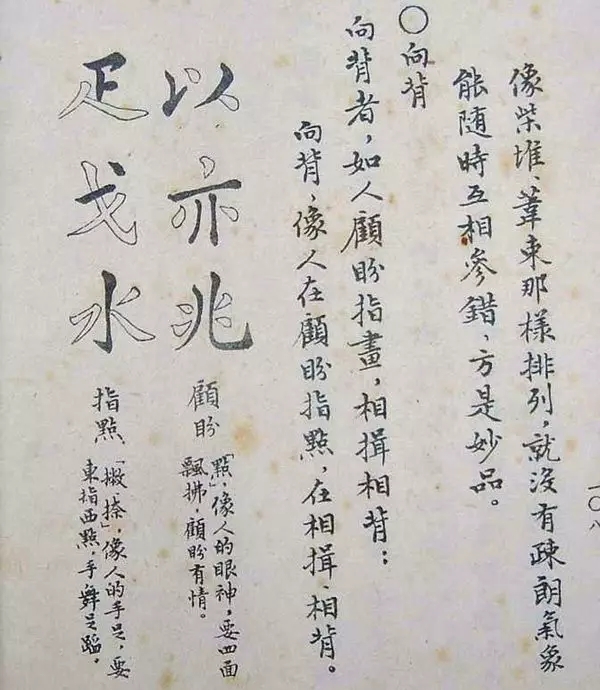 像柴堆、葦束那樣排列，就沒有疎朗氣象
能随時互相參錯，方是妙品。
〇向背
向背者，如人顧盼指畫，相揖相背：
向背，像人在顧盼指點，在相揖、相背。
以亦兆
顧盼
「點」，像人的眼神，要四面
飄拂，顧盼有情。
疋戈水
指點
「撇、捺」，像人的手足，要
東指西點，手舞足蹈。
一〇八